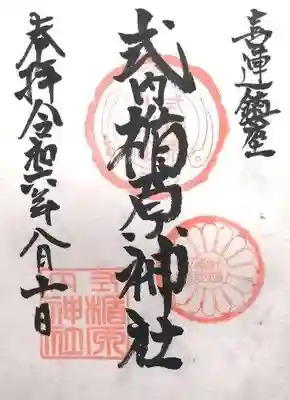 喜連鎮座
式内楯原神社
奉拝令和六年八月十日
式楯原内神社